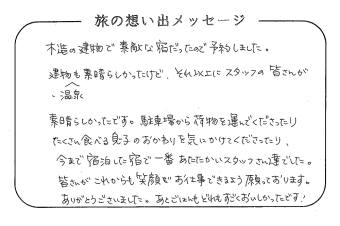 旅の想い出メッセージ
木造の建物で素敵な宿だったので予約しました。
建物も素晴らしかったけど、それ以上にスタッフの皆さんが
・温泉
素晴らしかったです。駐車場から荷物を運んでくださったり
たくさん食べる息子のおかわりを気にかけてくださったり、
今まで宿泊した宿で一番あたたかいスタッフさん達でした。
皆さんがこれからも笑顔でお仕事できるよう願っております。
ありがとうございました。あとごはんもどれもすごくおいしかったです!